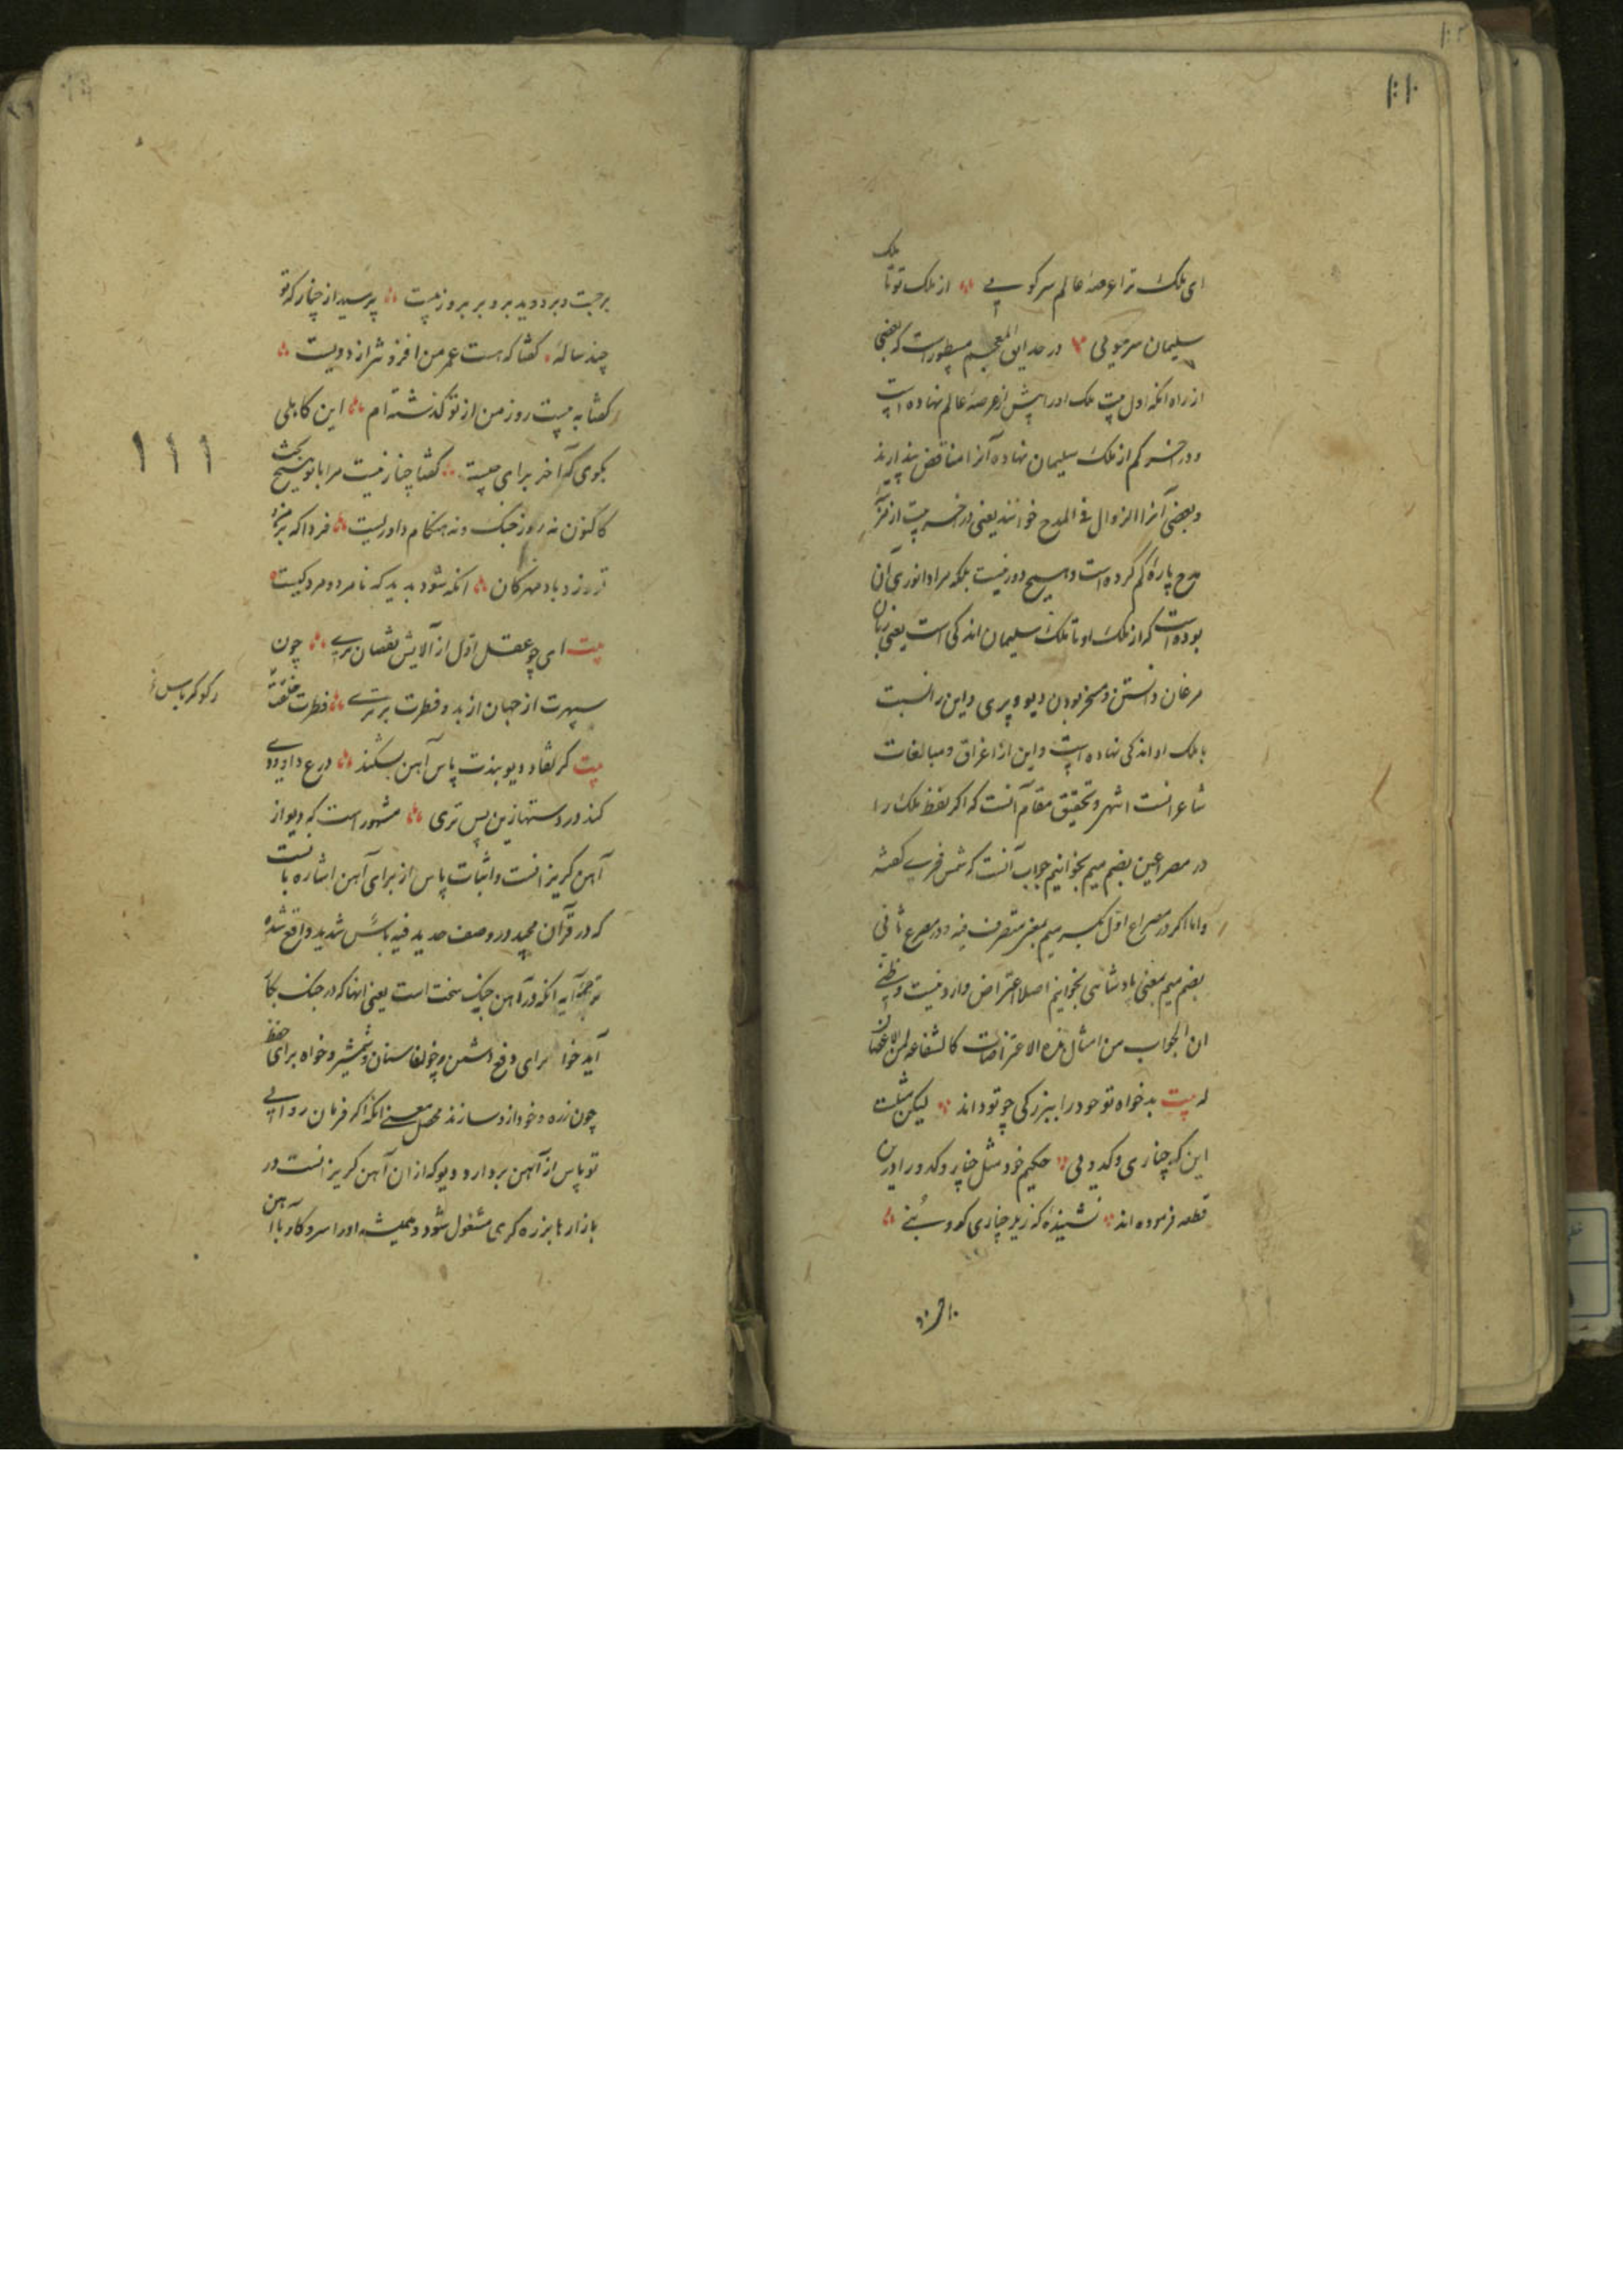 ای ملک ترا عرصه عالم سرکویی ؞ از ملک تو تا ملک
سلیمان سرمویی ؞ در حدایق المعجم مسطور است که بعضی
از راه آنکه اول بیت ملک او را پیش از عرصه عالم نهاده است
و در آخر کم از ملک سلیمان نهاده آنرا مناقض پندارند
و بعضی آنرا الزوال فی المدح خوانند یعنی در آخر بیت از
مدح پاره کم کرده است و هیچ دور نیست بلکه مراد انوری آن
بوده است که از ملک او تا ملک سلیمان اندکی است یعنی زبان
مرغان دانستن و مسخر بودن دیو و پری و این را نسبت
با ملک او اندکی نهاده است و این از اغراق و مبالغات
شاعرانست اشهر و تحقیق مقام آنست که اگر لفظ ملک را
در مصراعین بضم میم بخوانیم جواب آنست که شمس فخری گفته
و اما اگر در مصراع اول بکسر میم بمعنی متصرف فیه و در مصرع ثانی
بضم میم بمعنی پادشاهی بخوانیم اصلا اعتراض وارد نیست و ظنی
ان الجواب من امثال هذه الاعتراضات کالشفاعه لمن لا عصیان
له بیت بدخواه تو خود را ببزرکی چو تو داند ؞ لیکن مثلست
این که چناری و کدویی ؞ حکیم خود مثل چنار و کدو را درین
قطعه فرموده اند ؞ نشنیدهٔ که زیر چناری کدو بنی ؞
بر جست و بر دوید برو بر بروز بیست ؞ پرسید از چنار که تو
چند سالهٔ ؞ کفتا که هست عمر من افزونتر از دویست ؞
کفتا به بیست روز من از تو کذشته ام ؞ این کاهلی
بکوی که آخر برای چیست ؞ کفتا چنار نیست مرا با تو هیچ بحث
کاکنون نه روز جنک و نه هنکام داوریست ؞ فردا که بر من و
تو وزد باد مهرکان ؞ آنکه شود بدید که نامرد و مرد کیست
بیت ای چو عقل اول از آلایش نقصان بری ؞ چون
سپهرت از جهان از بدو فطرت برتری ؞ فطرت خلقت
رکوکرباس
بیت کر نفاد دیو بندت پاس آهن بشکند ؞ درع داودی
کند در دستها زین پس تری ؞ مشهور است که دیو از
آهن کریزانست و اثبات پاس از برای آهن اشاره با نست
که در قرآن مجید در وصف حدید فیه بأس شدید واقع شده
ترجمه آیه آنکه در آهن جنک سخت است یعنی آنها که در جنک بکار
آید خواه برای دفع دشمن چون سنان و شمشیر و خواه برای حفظ
چون زره و خود از و سازند محصل معنی آنکه اگر فرمان روایی
تو پاس از آهن بردارد دیو که از آن آهن کریزانست در
بازارها بزره کری مشغول شود و همیشه او را سر و کار با آهن